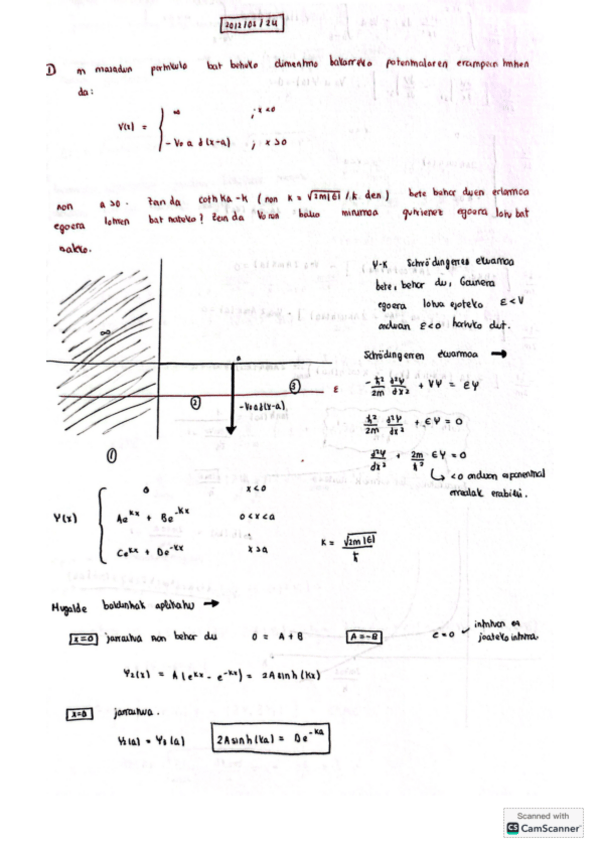 2012/02/24
1) m masadun partikula bat beheko dimentsio bakarreko potentzialaren eraginpean
da:
V(x) = { ∞ ; x<0
-V₀ a δ(x-a) ; x>0
non a>0. Zein da coth ka-k (non k = √2m|E|/ħ den) bete behar duen erlazioa
egoera lotu bat Zein da V₀-ren balio minimoa egoera lotu bat
∞
a
E
-V₀aδ(x-a)
①
②
③
Ψ-k Schrödingerren ekuazioa
bete behar du, Gainera
egoera lotua E<V
orduan E<0 dut.
Schrödingerren ekuazioa →
-ħ²/2m d²Ψ/dx² + VΨ = EΨ
ħ²/2m d²Ψ/dx² + EΨ = 0
d²Ψ/dx² + 2m/ħ² EΨ = 0
↳ <0 orduan exponentzial
errealak erabili.
Ψ(x) { 0 x<0
Ae^{kx} + Be^{-kx} 0<x<a
Ce^{kx} + De^{-kx} x>a
k = √2m|E|/ħ
Mugalde baldintzak aplikatu →
x=0 jarraitua izan behar du 0 = A+B A=-B C=0 ✓ infinitura ez
joateko
Ψ₂(x) = A(e^{kx} - e^{-kx}) = 2A sinh(kx)
x=a jarraitua.
Ψ₂(a) = Ψ₃(a) 2A sinh(ka) = De^{-ka}
Scanned with
CS CamScanner